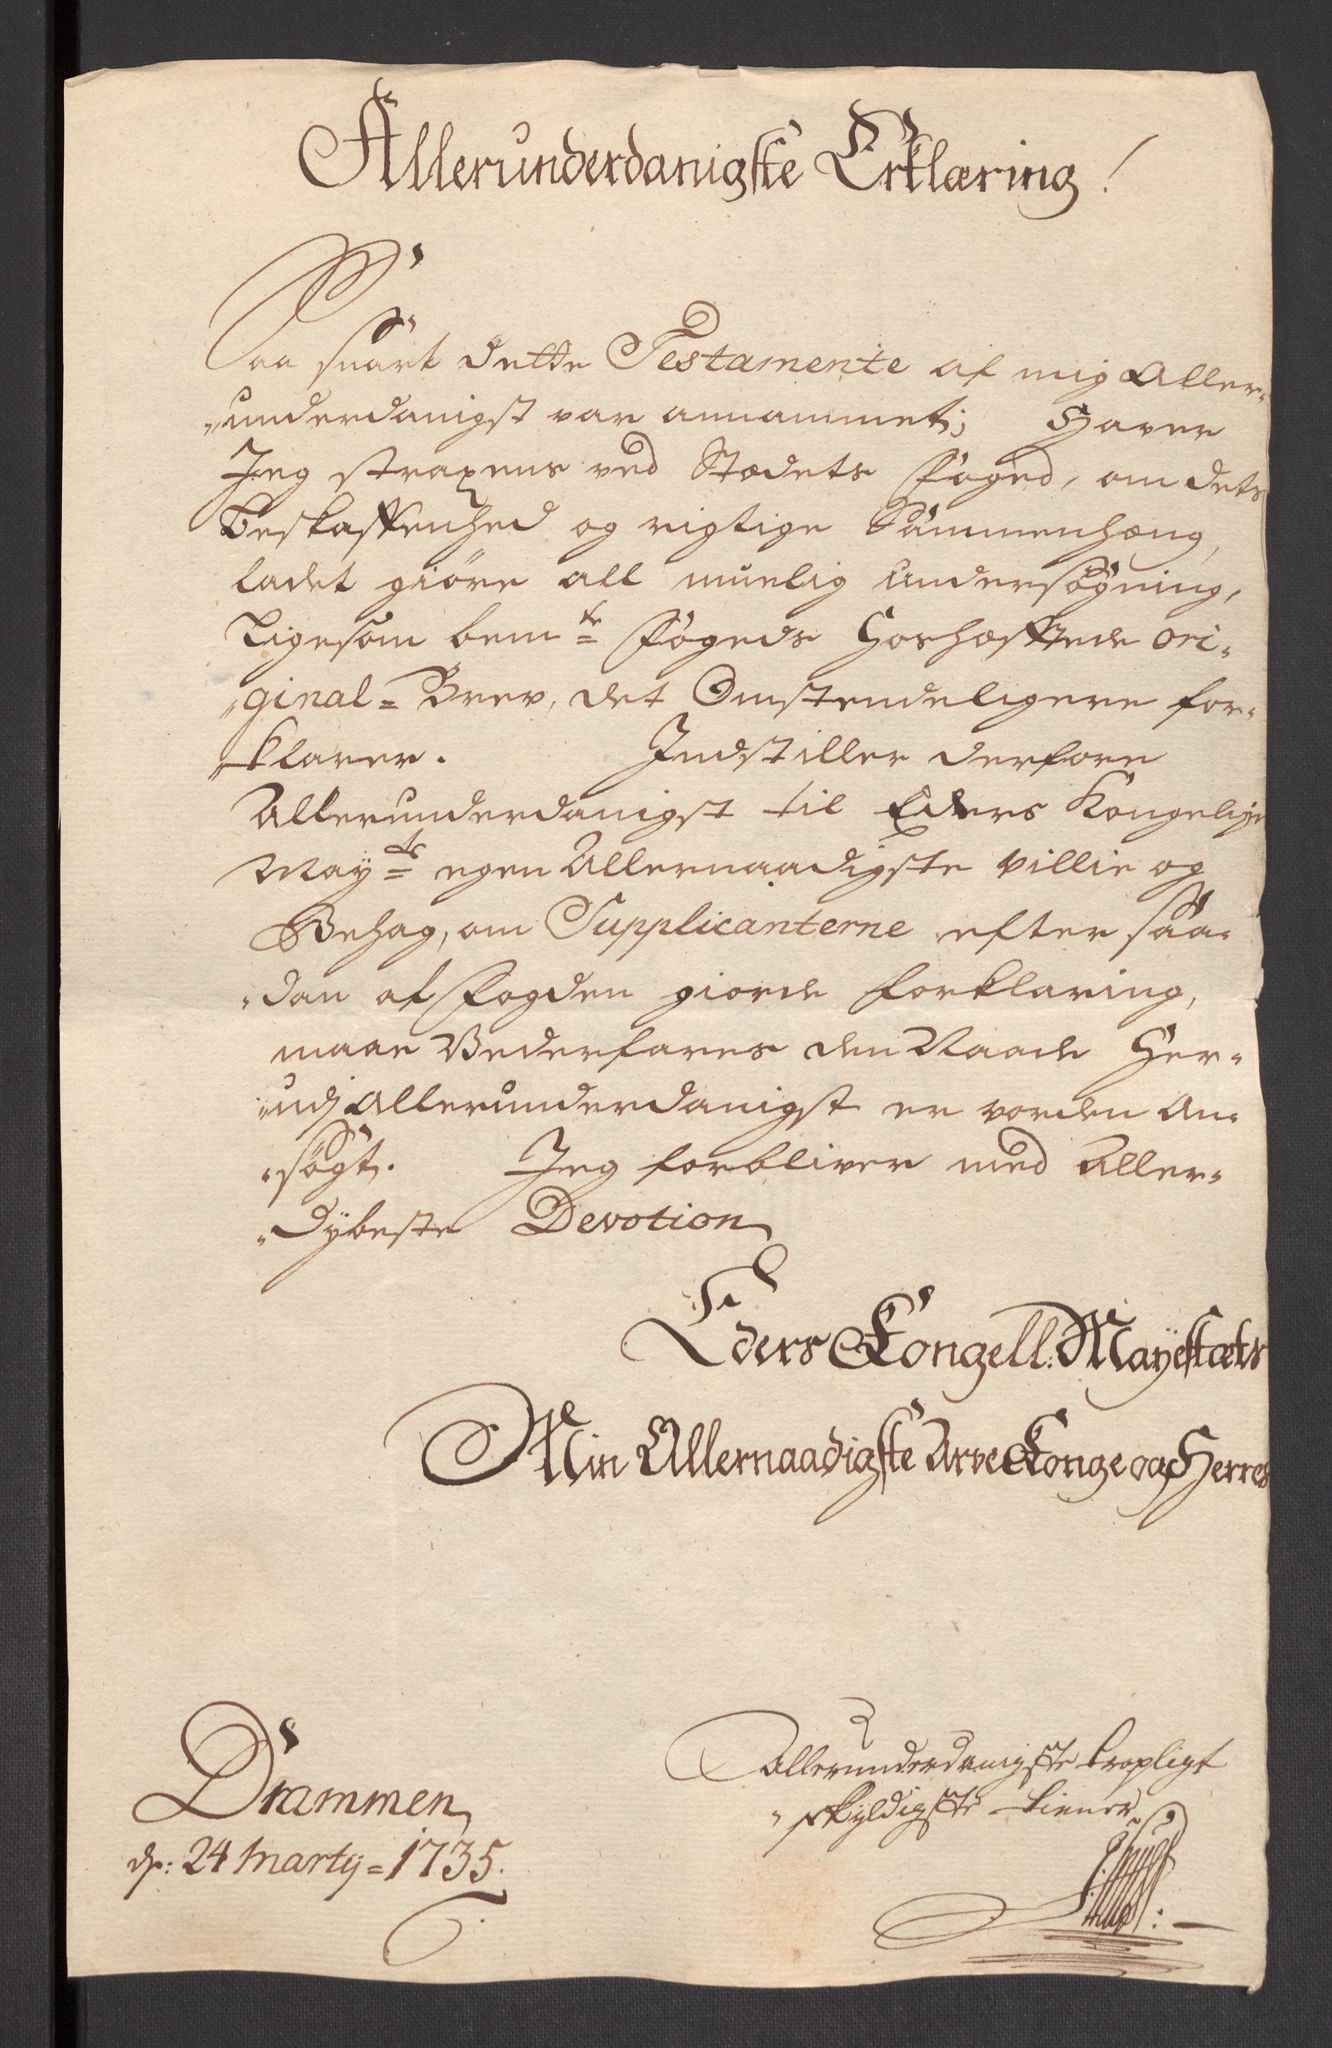 Allerunderdanigste Erklæring!
Saa snart dette Testamente af mig Aller-
underdanigst var annammet; Haver
Jeg straxens ved Stædets Foged, om dets
Beskaffenhed og rigtige Sammenhæng,
ladet giøre all muelig undersøgning,
Ligesom bem:te Fogeds Hoshæftede ori-
ginal-Brev, det Omstendeligere for-
klarer. Indstiller derfore
Allerunderdanigst til Eders Kongelige
May:ts egen Allernaadigste villie og
Behag, om Supplicanterne efter saa-
dan af Fogden giorde forklaring,
maae Vederfares den Naade Her-
udj Allerunderdanigst er vorden An-
søgt. Jeg forbliver med Aller-
dybeste Devotion
Eders Kongell: Mayestæts
Min Allernaadigste Arve Konge og Herres
Allerunderdanigste tropligt
skyldigste tiener
Drammen
d: 24 Marty = 1735.